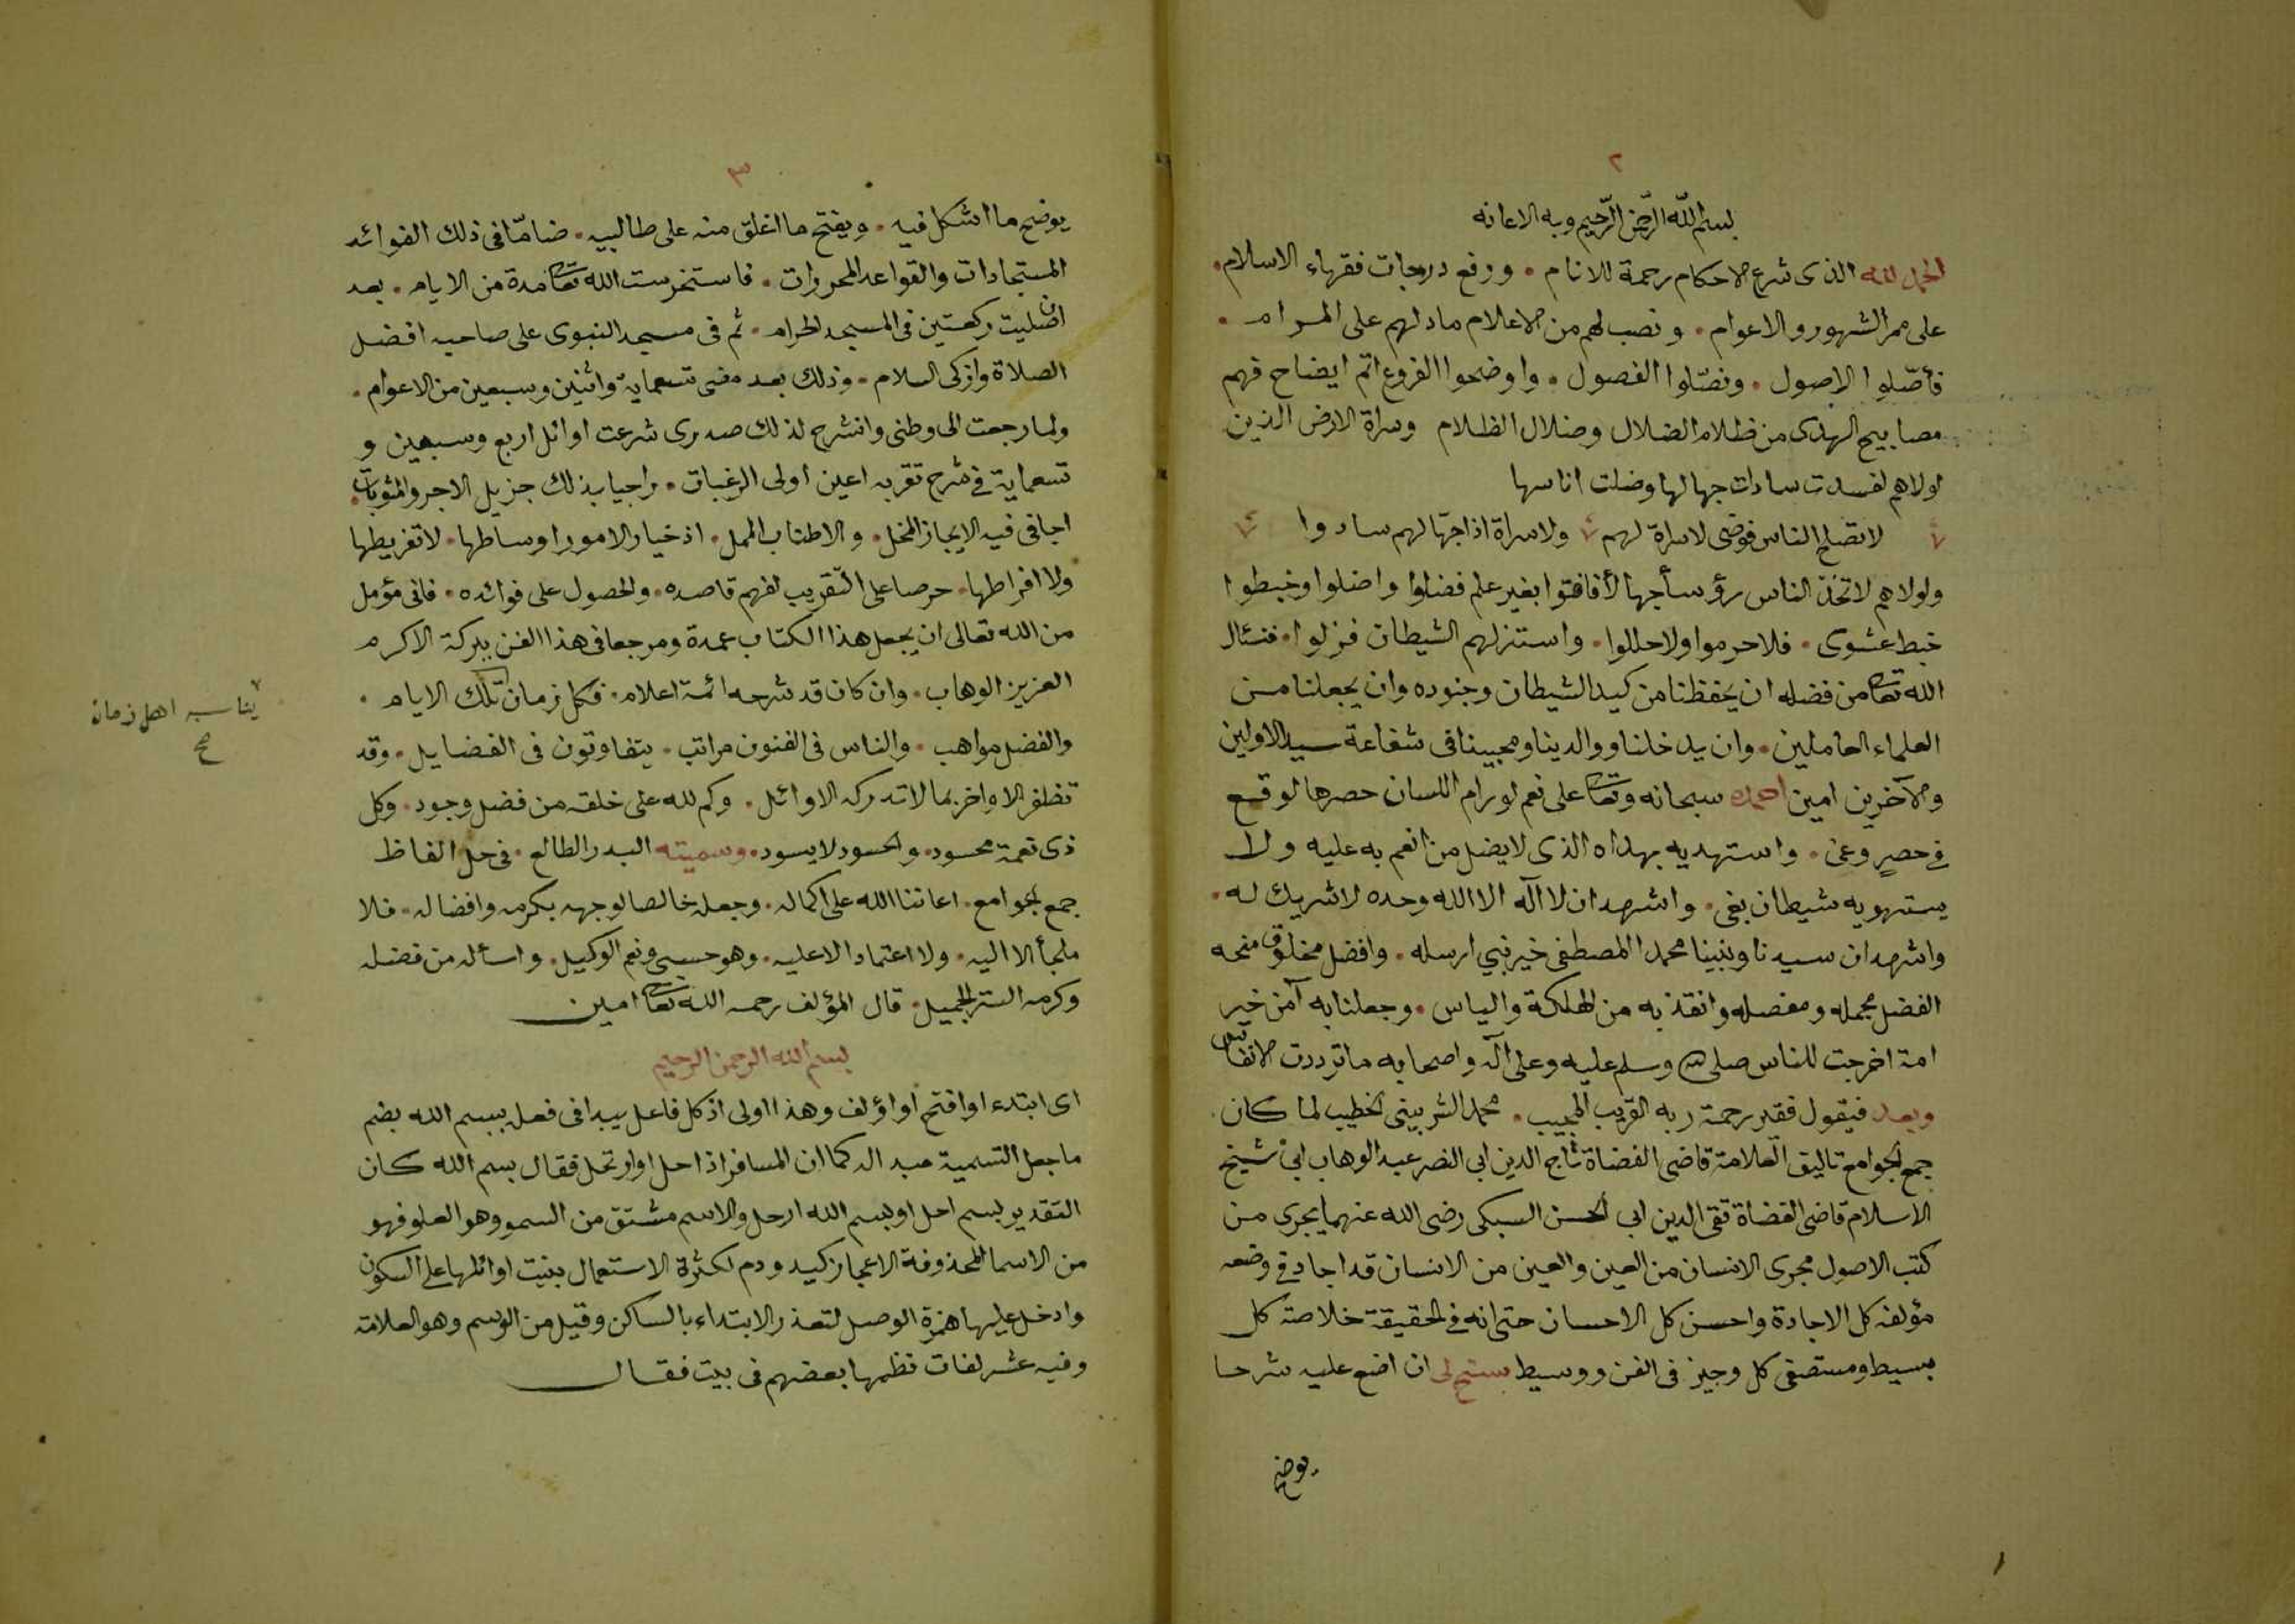 ٢
بسم الله الرحمن الرحيم وبه الاعانه
الحمد لله الذى شرع الاحكام رحمة للانام • ورفع درجات فقهاء الاسلام •
على ممر الشهور والاعوام • ونصب لهم من الاعلام ما دلهم على المرام •
فأصّلوا الاصول • وفصّلوا الفصول • واوضحوا الفروع اتم ايضاح فهم
مصابيح الهدى من ظلام الضلال وضلال الظلام وسراة الارض الذين
لولاهم لفسدت سادات جهالها وضلت اناسها
لا تصلح الناس فوضى لا سراة لهم ولا سراة اذا جهّالهم سادوا
ولولاهم لاتخذ الناس رؤسا جهالا فافتوا بغير علم فضلوا واضلوا وخبطوا
خبط عشوى • فلا حرموا ولا حللوا • واستنزلهم الشيطان فزلوا • فنسئال
الله تعا من فضله ان يحفظنا من كيد الشيطان وجنوده وان يجعلنا من
العلماء العاملين • وان يدخلنا ووالدينا ومحبينا فى شفاعة سيد الاولين
والآخرين امين احمده سبحانه وتعا على نعم لو رام اللسان حصرها لوقع
فى حصر وعى • واستهديه بهداه الذى لا يضل من انعم به عليه ولا
يستهويه شيطان بغى • واشهد ان لا اله الا الله وحده لا شريك له •
واشهد ان سيدنا ونبينا محمدا المصطفى خير نبي ارسله • وافضل مخلوق منحه
الفضل مجمله ومفصله وانقذ به من الهلكة والياس • وجعلنا به آمن خير
امة اخرجت للناس صلى الله وسلم عليه وعلى آله واصحابه ما ترددت الانفاس
وبعد فيقول فقير رحمة ربه القريب المجيب • محمد الشربينى الخطيب لما كان
جمع الجوامع تاليق العلامة قاضى القضاة تاج الدين ابى النصر عبد الوهاب ابن شيخ
الاسلام قاضى القضاة تقى الدين ابى الحسن السبكى رضى الله عنهما يجرى من
كتب الاصول مجرى الانسان من العين والعين من الانسان قد اجاد فى وضعه
مؤلفه كل الاجادة واحسن كل الاحسان حتى انه فى الحقيقة خلاصة كل
بسيط ومستصفى كل وجيز فى الفن ووسيط سنح لى ان اضع عليه شرحا
يوضح
١
٣
يوضح ما اشكل فيه • ويفتح ما اغلق منه على طالبيه • ضامّا فى ذلك الفوائد
المستجادات والقواعد المحررات • فاستخرست الله تعا مدة من الايام • بعد
ان صليت ركعتين فى المسجد الحرام • ثم فى مسجد النبوى على صاحبه افضل
الصلاة وازكى السلام • وذلك بعد مضى تسعماية واثنين وسبعين من الاعوام •
ولما رجعت الى وطنى وانشرح لذلك صدرى شرعت اوائل اربع وسبعين و
تسعماية فى شرح تقر به اعين اولى الرغبات • راجيا بذلك جزيل الاجر والمثوبات •
اجافى فيه الايجاز المخل • والاطناب الممل • اذ خيار الامور اوساطها • لا تفريطها
ولا افراطها • حرصا على التقريب لفهم قاصده • والحصول على فوائده • فانى مؤمل
من الله تعالى ان يجعل هذا الكتاب عمدة ومرجعا فى هذا الفن ببركة الاكرم
العزيز الوهاب • وان كان قد شرحه ائمة اعلام • فكل زمان تلك الايام •
يناسبه اهل زمان
صح
والفضل مواهب • والناس فى الفنون مراتب • يتفاوتون فى الفضايل • وقد
تظفر الاواخر بما لا تدركه الاوائل • وكم لله على خلقه من فضل وجود • وكل
ذى نعمة محسود • والحسود لا يسود • وسميته البدر الطالع • فى حل الفاظ
جمع الجوامع • اعاننا الله على اكماله • وجعله خالصا لوجهه بكرمه وافضاله • فلا
ملجأ الا اليه • ولا اعتماد الا عليه • وهو حسبى ونعم الوكيل • واسأله من فضله
وكرمه الستر الجميل • قال المؤلف رحمه الله تعا امين
بسم الله الرحمن الرحيم
اى ابتدء او افتح او اؤلف وهذا اولى اذ كل فاعل يبدا فى فعله ببسم الله يضم
ما جعل التسمية مبداله كما ان المسافر اذا حل او ارتحل فقال بسم الله كان
التقدير بسم احل او بسم الله ارحل والاسم مشتق من السمو وهو العلو فهو
من الاسما المحذوفة الاعجاز كيد ودم لكثرة الاستعمال بنيت اوائلها على السكون
وادخل عليها همزة الوصل لتعذر الابتداء بالساكن وقيل من الوسم وهو العلامة
وفيه عشر لغات نظمها بعضهم فى بيت فقال